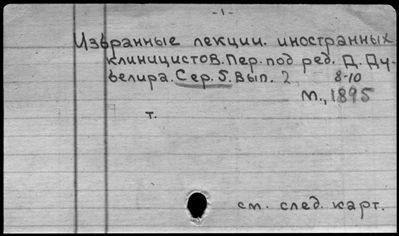 -1-
Избранные лекции. иностранных
клиницистов. Пер. под ред. Д. Ду-
велира. Сер. 5. Вып. 2 8-10
М., 1895
т.
см. след. карт.